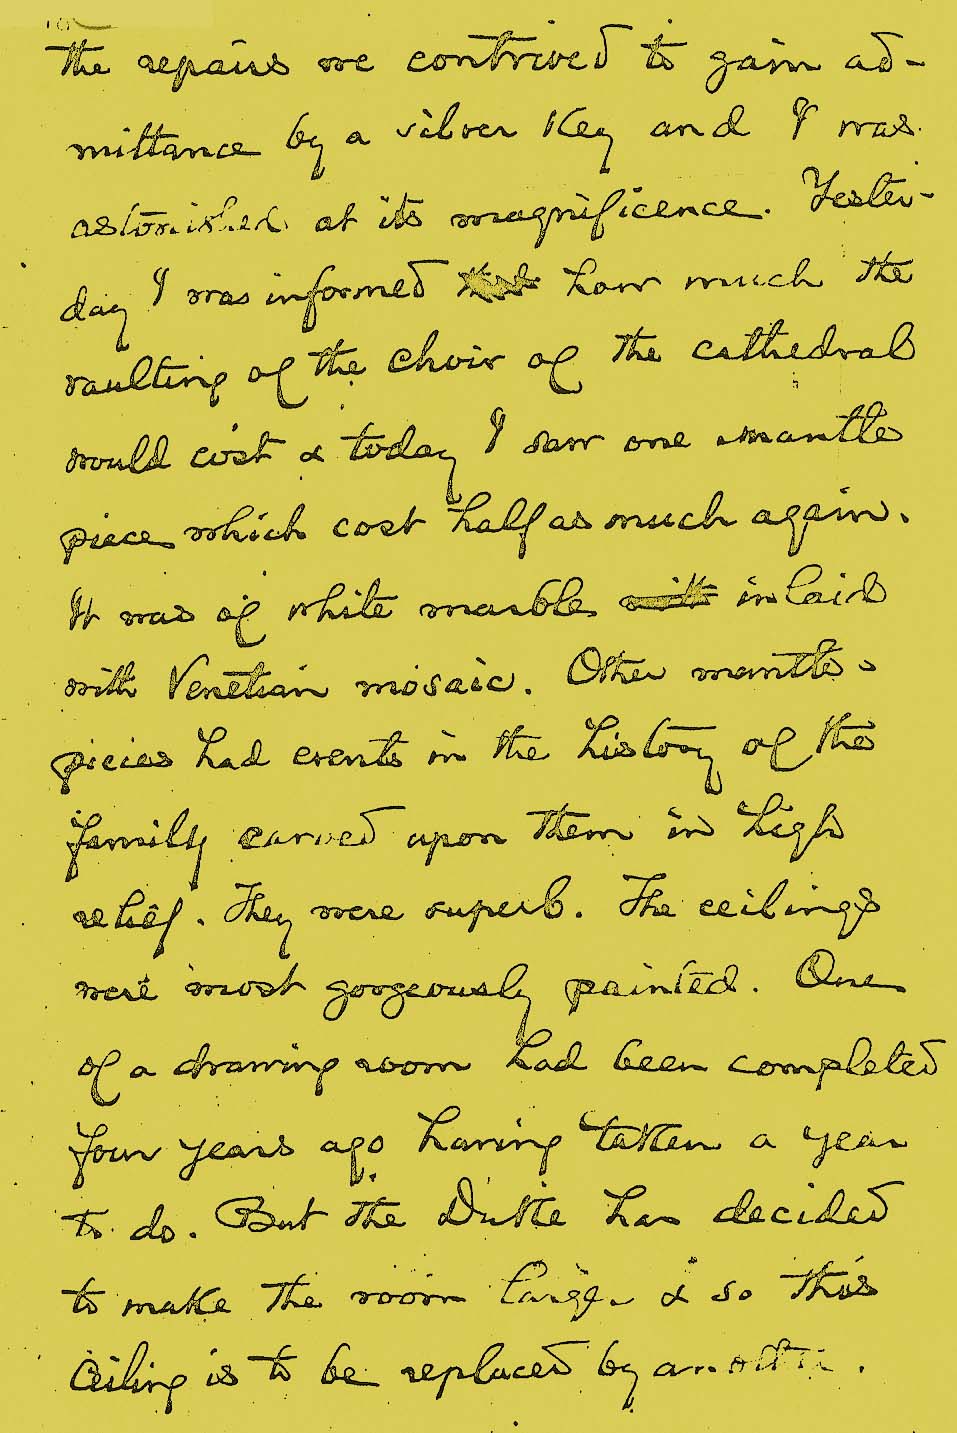 the repairs we contrived to gain ad-
mittance by a silver Key and I was
astonished at its magnificence. Yester-
day I was informed that how much the
vaulting of the choir of the cathedral
would cost & today I saw one mantle
piece which cost half as much again.
It was of white marble with inlaid
with Venetian mosaic. Other mantle-
pieces had events in the history of the
family carved upon them in high
relief. They were superb. The ceilings
were most gorgeously painted. One
of a drawing room had been completed
four years ago having taken a year
to do. But the Duke has decided
to make the room large & so this
Ceiling is to be replaced by another.